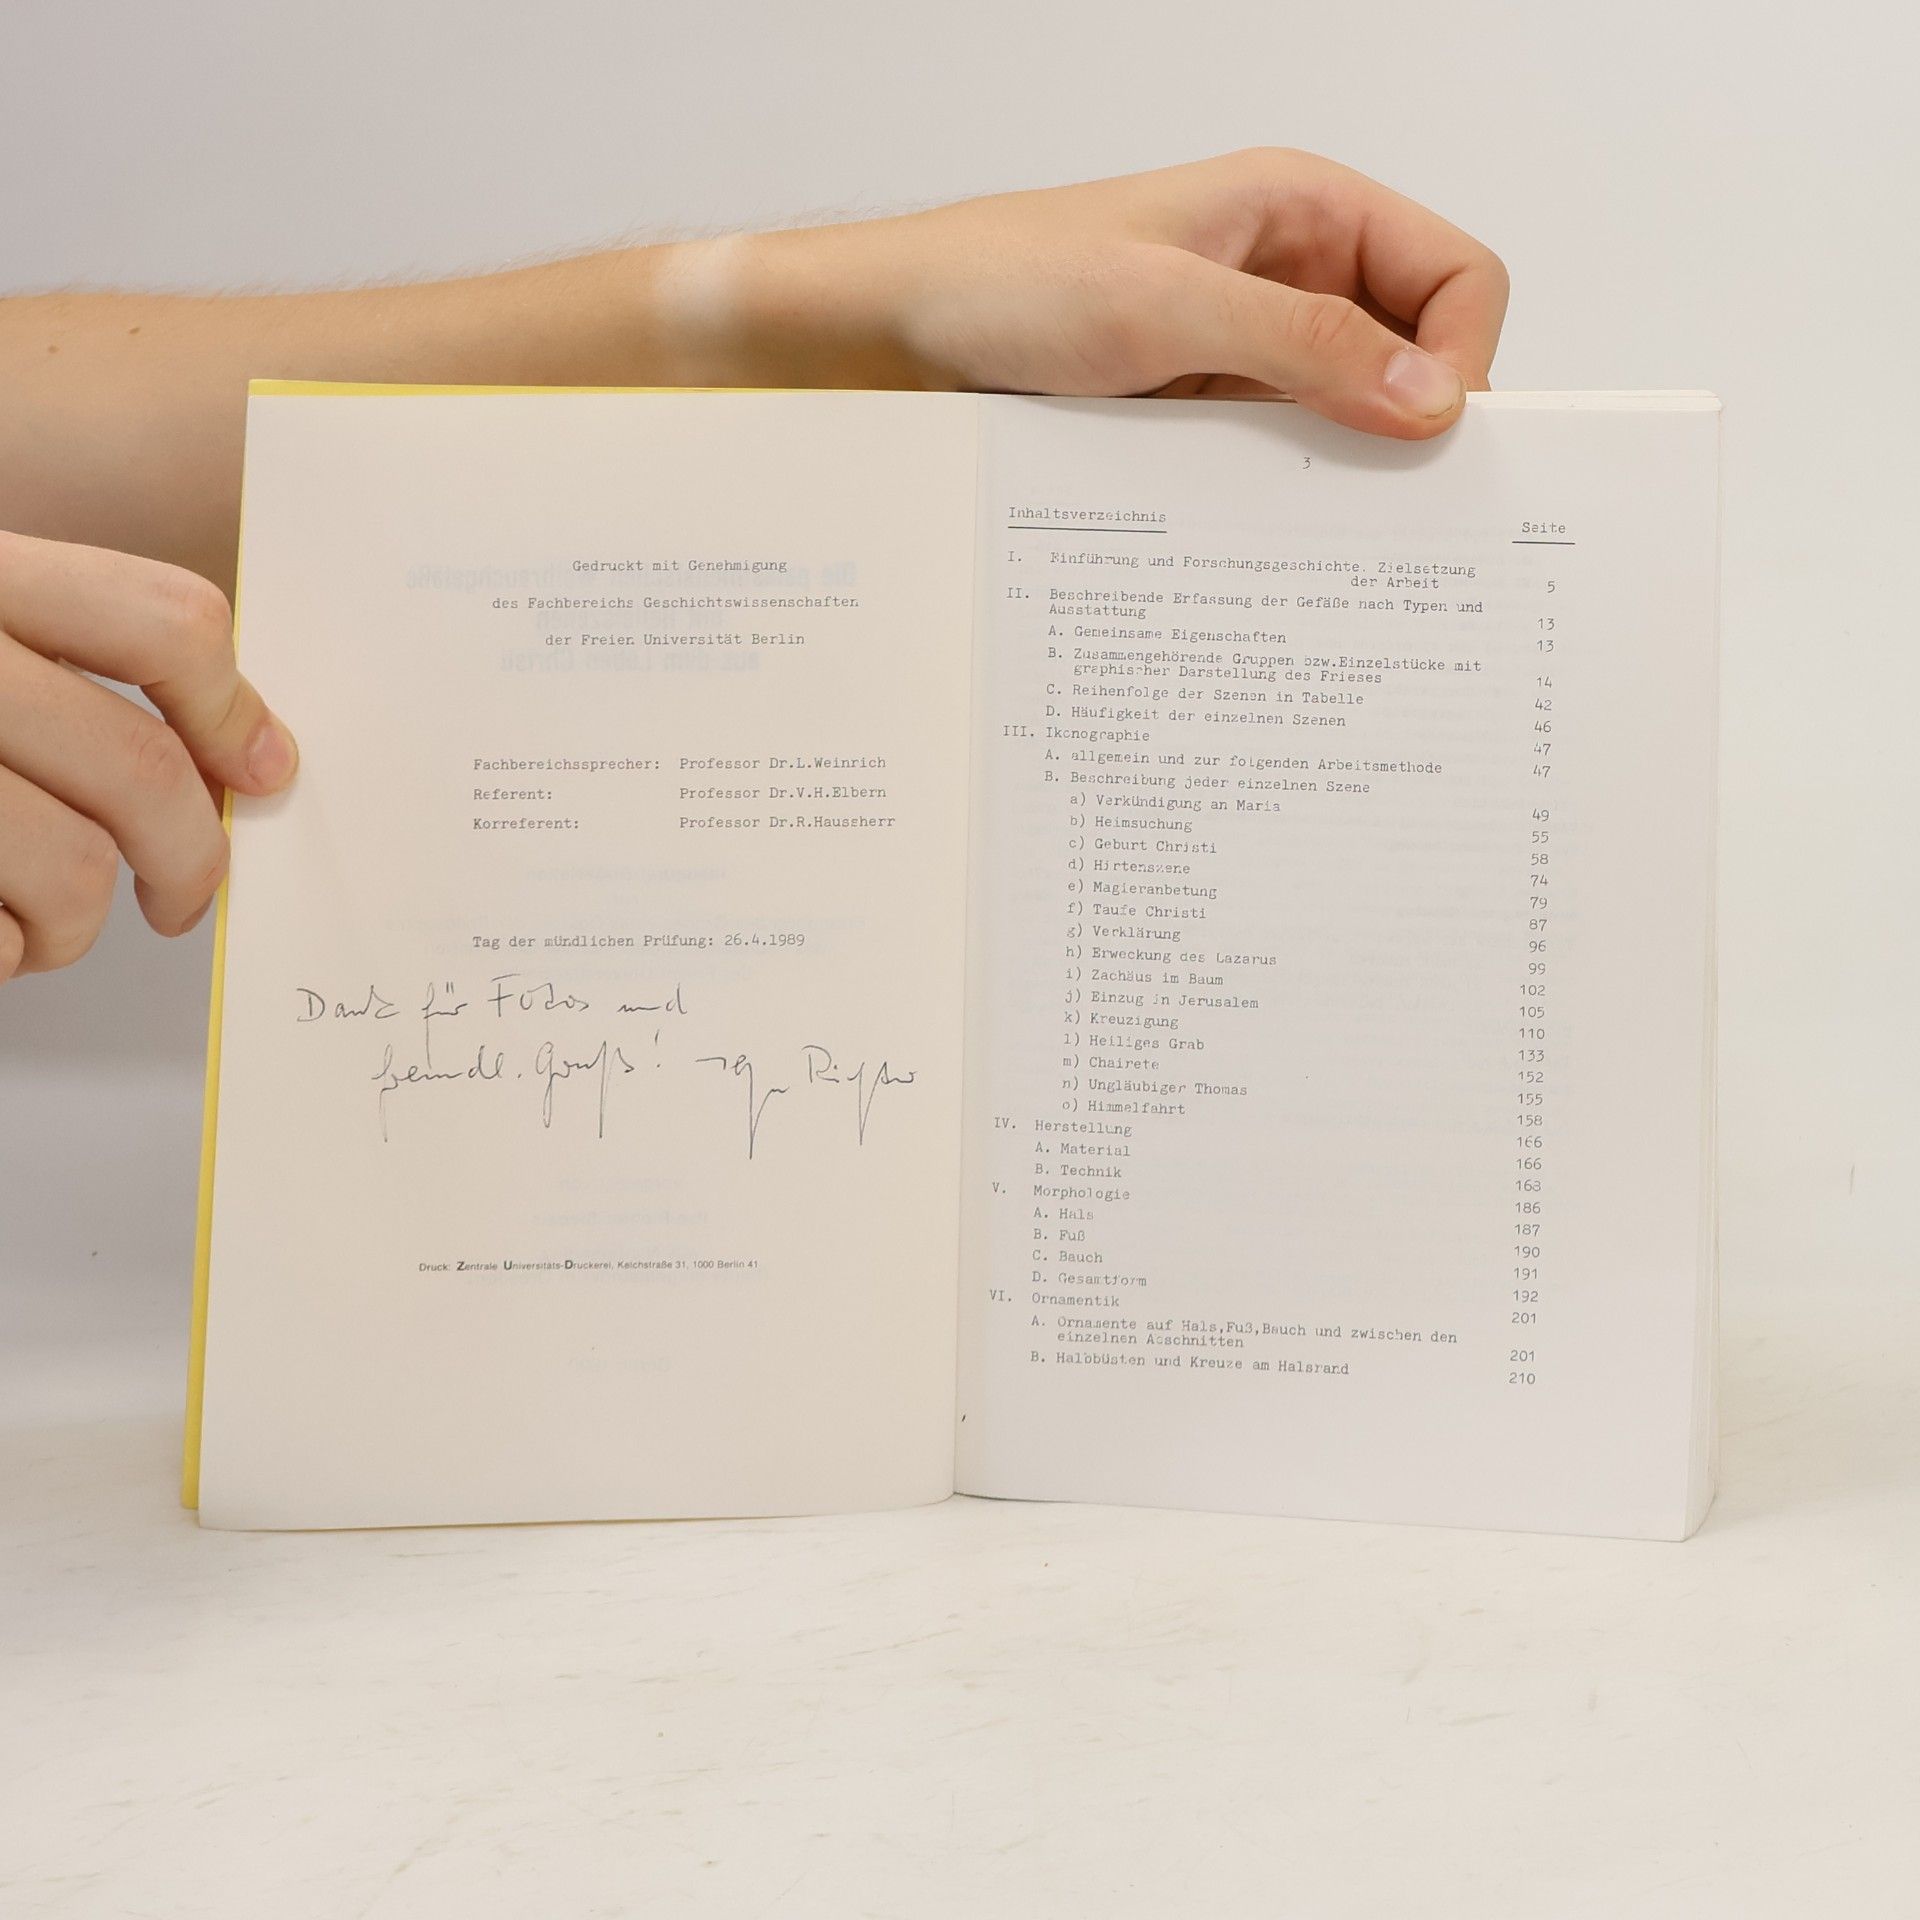 Gedruckt mit Genehmigung
des Fachbereichs Geschichtswissenschaften
der Freien Universität Berlin
Fachbereichssprecher: Professor Dr.L.Weinrich
Referent: Professor Dr.V.H.Elbern
Korreferent: Professor Dr.R.Haussherr
Tag der mündlichen Prüfung: 26.4.1989
Dank für Fotos und
freundl. Gruß!
Druck: Zentrale Universitäts-Druckerei, Kelchstraße 31, 1000 Berlin 41
3
Inhaltsverzeichnis
Seite
I. Einführung und Forschungsgeschichte. Zielsetzung
der Arbeit 5
II. Beschreibende Erfassung der Gefäße nach Typen und
Ausstattung 13
A. Gemeinsame Eigenschaften 13
B. Zusammengehörende Gruppen bzw.Einzelstücke mit
graphischer Darstellung des Frieses 14
C. Reihenfolge der Szenen in Tabelle 42
D. Häufigkeit der einzelnen Szenen 46
III. Ikonographie 47
A. allgemein und zur folgenden Arbeitsmethode 47
B. Beschreibung jeder einzelnen Szene
a) Verkündigung an Maria 49
b) Heimsuchung 55
c) Geburt Christi 58
d) Hirtenszene 74
e) Magieranbetung 79
f) Taufe Christi 87
g) Verklärung 96
h) Erweckung des Lazarus 99
i) Zachäus im Baum 102
j) Einzug in Jerusalem 105
k) Kreuzigung 110
l) Heiliges Grab 133
m) Chairete 152
n) Ungläubiger Thomas 155
o) Himmelfahrt 158
IV. Herstellung 166
A. Material 166
B. Technik 168
V. Morphologie 186
A. Hals 187
B. Fuß 190
C. Bauch 191
D. Gesamtform 192
VI. Ornamentik 201
A. Ornamente auf Hals,Fuß,Bauch und zwischen den
einzelnen Abschnitten 201
B. Halbbüsten und Kreuze am Halsrand 210